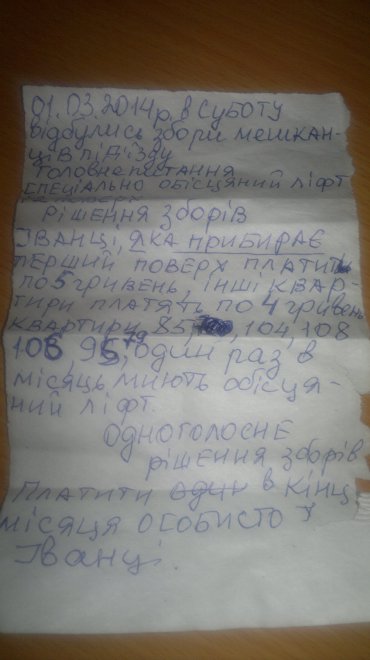 01.03.2014р. в СУБОТУ
відбулись збори мешкан-
ців під'їзду
Головне питання
СПЕЦІАЛЬНО ОБІСЦЯНИЙ ЛІФТ
РІШЕННЯ ЗБОРІВ
ІВАНЦІ, ЯКА ПРИБИРАЄ
ПЕРШИЙ ПОВЕРХ ПЛАТИТИ
ПО 5 ГРИВЕНЬ, ІНШІ КВАР-
ТИРИ ПЛАТЯТЬ ПО 4 ГРИВЕНЬ
КВАРТИРИ 85, 79, 104, 108
106 95, один раз в
місяць миють обісця-
ний ліфт.
ОДНОГОЛОСНЕ
рішення зборів
Платити один в кінц
місяця особисто у
Іванці.